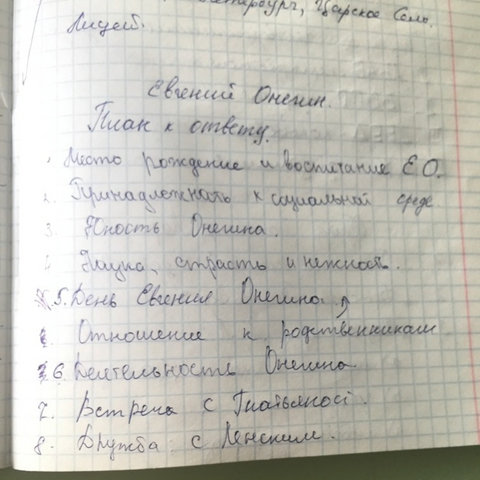 Петербург, Царское Село.
Лицей.
Евгений Онегин.
План к ответу.
1. Место рождение и воспитание Е.О.
2. Принадлежность к социальной среде
3. Юность Онегина.
4. Наука, страсть и нежность.
5. День Евгения Онегина.
Отношение к родственникам
6. Деятельность Онегина.
7. Встреча с Татьяной.
8. Дружба с Ленским.